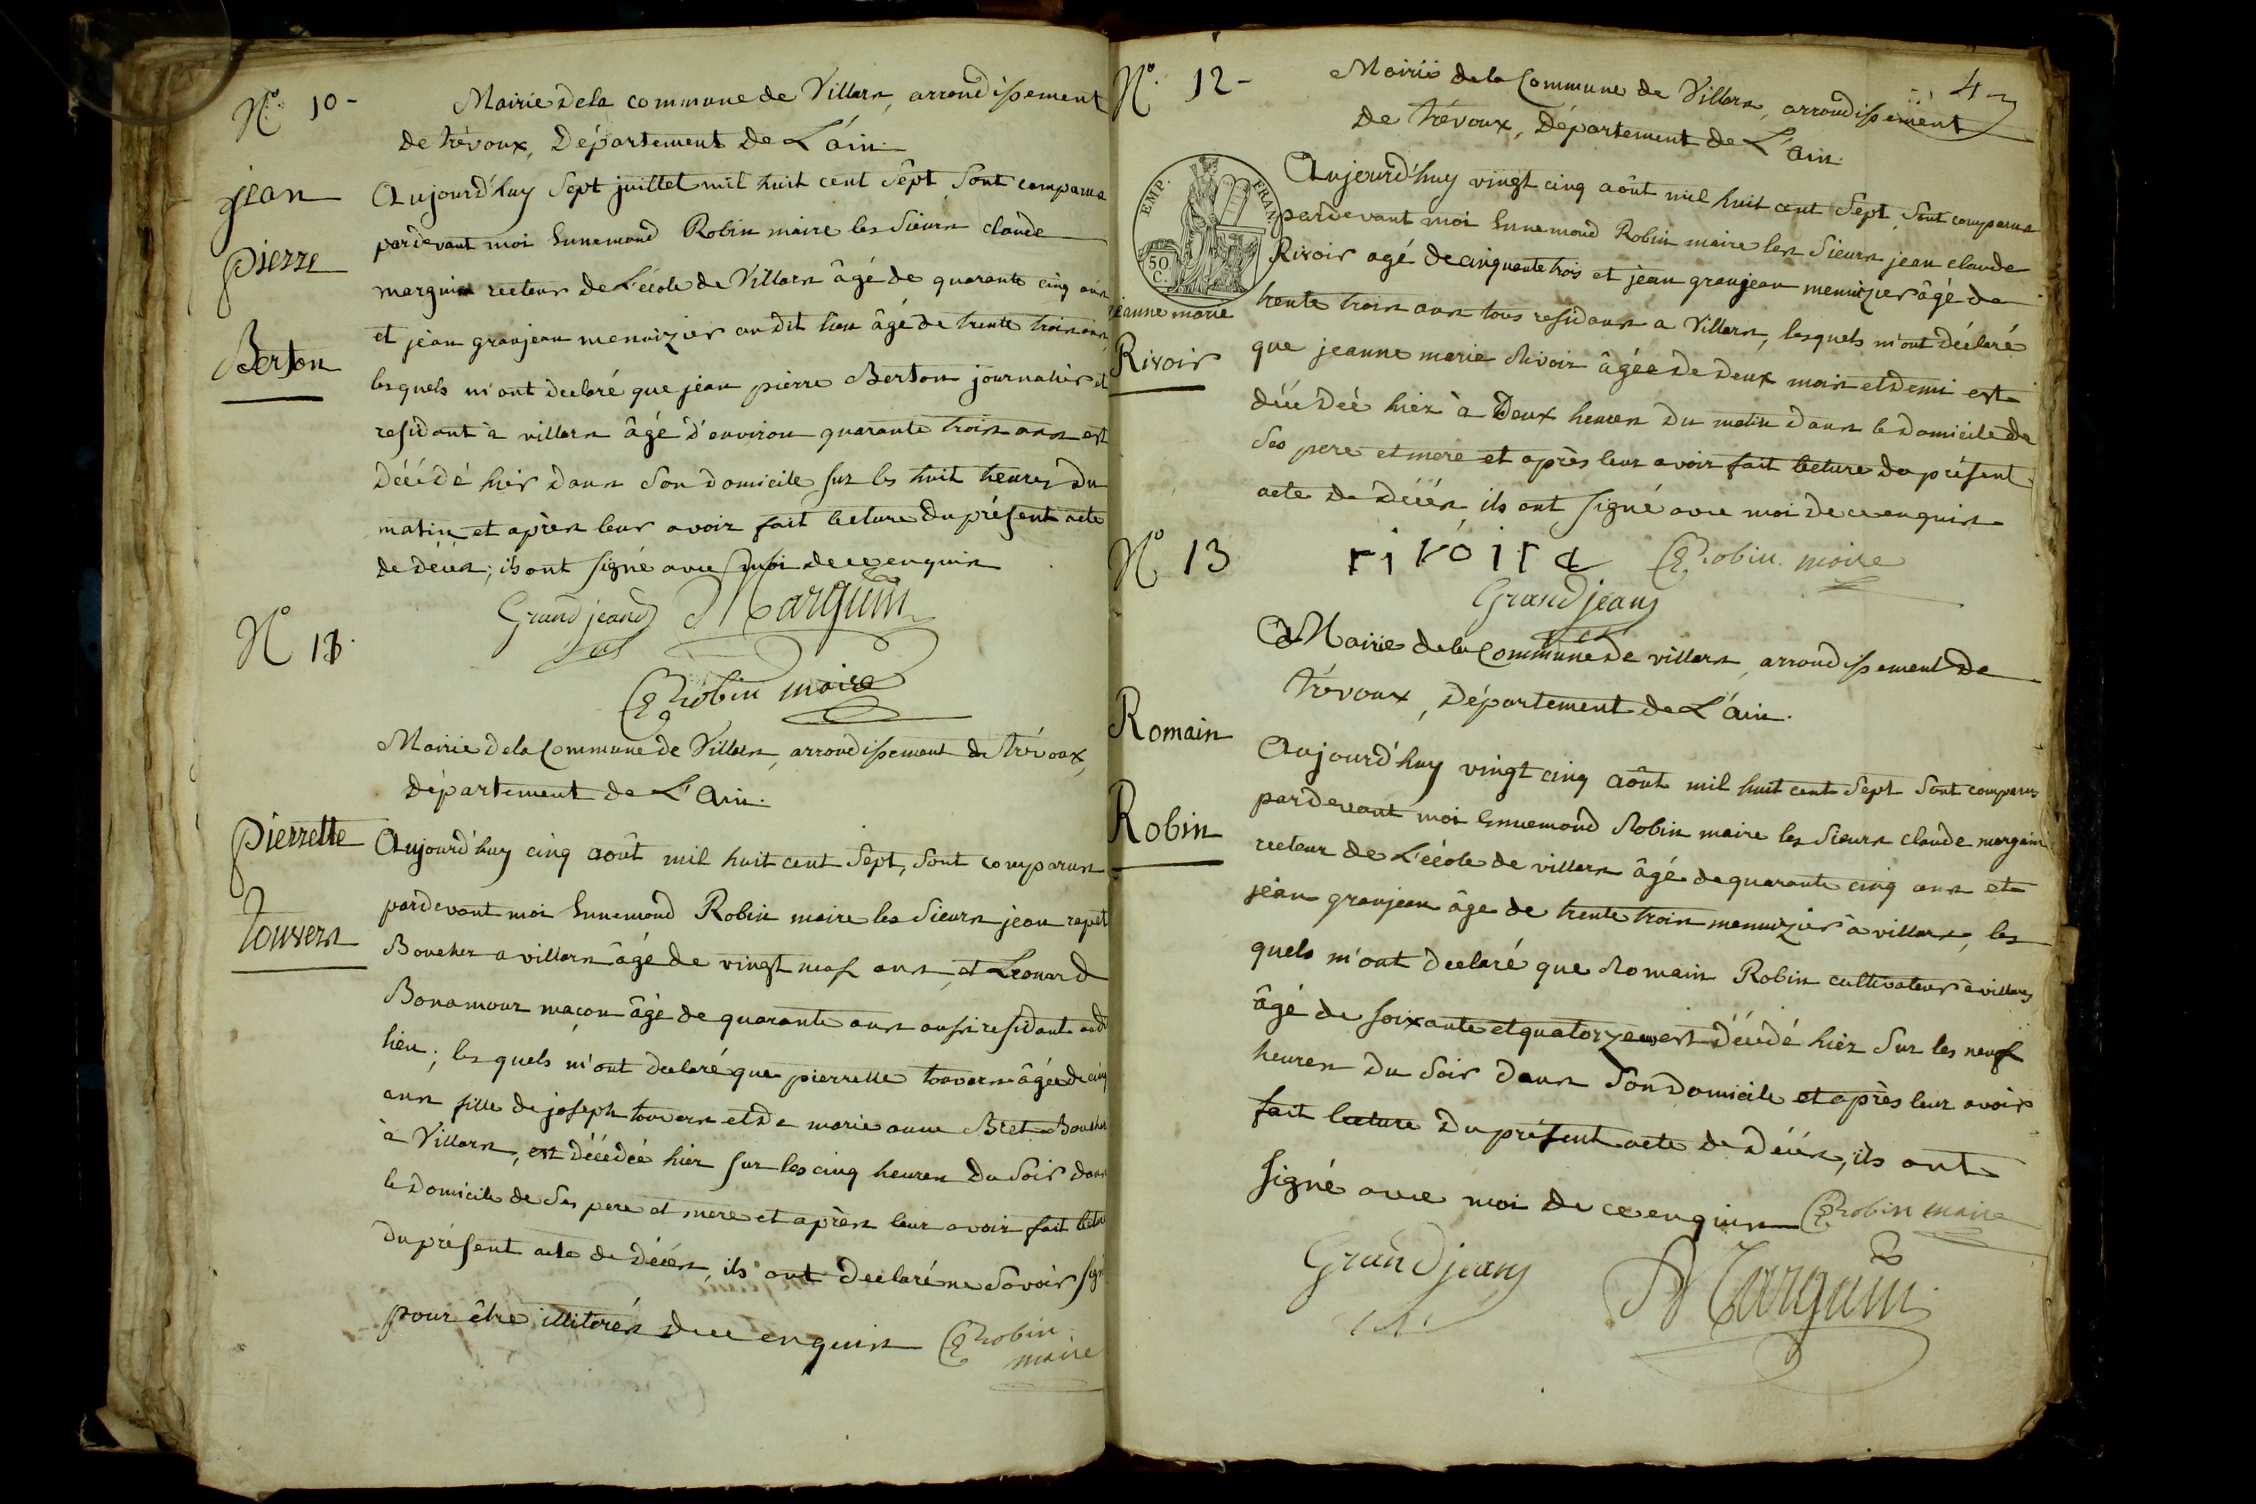 N.º 10 -
Mairie de la commune de Villars, arrondissement
de trévoux, Département de L'ain.
jean
pierre
Berton
Aujourd'huy sept juillet mil huit cent sept sont comparus
pardevant moi Ennemond Robin maire les sieurs claude
marguin recteur de L'école de Villars âgé de quarante cinq ans
et jean granjean menuizier au dit lieu âgé de trente trois ans,
lesquels m'ont declaré que jean pierre Berton journalier et
residant à villars âgé d'environ quarante trois ans est
décédé hier dans son domicile sur les huit heures du
matin et après leur avoir fait lecture du présent acte
de décès; ils ont signé avec moi de ce enquis
Grandjean Marguin
E Robin maire
N.º 11.
Mairie de la Commune de Villars, arrondissement de trévoux,
Département de L'Ain.
pierrette
touvers
Aujourd'huy cinq août mil huit cent sept, sont comparus
pardevant moi Ennemond Robin maire les sieurs jean
Boucher a villars âgé de vingt neuf ans, et Léonard
Bonamour maçon âgé de quarante ans aussi residant audt
lieu; les quels m'ont declaré que pierrette touvers âgée de cinq
ans fille de joseph touvers et de marie anne Bret Boucher
à Villars, est décédée hier sur les cinq heures du soir dans
le domicile de ses pere et mere et après leur avoir fait lectu
du présent acte de décès, ils ont declaré ne savoir sign
pour être illiterés de ce enquis E Robin
maire
4
N.º 12 -
Mairie de la Commune de Villars, arrondissement
de trévoux, Département de L'ain.
EMP. FRAN.
50
C.
jeanne marie
Rivoir
Aujourd'huy vingt cinq août mil huit cent sept, sont comparus
pardevant moi Ennemond Robin maire les sieurs jean claude
Rivoir agé de cinquante trois et jean granjean menuizier âgé de
trente trois ans tous residans a Villars, lesquels m'ont déclaré
que jeanne marie Rivoir âgée de deux mois et demi est
décédée hier à deux heures du matin dans le domicile de
ses pere et mere et après leur avoir fait lecture du présent
acte de décès, ils ont signé avec moi de ce enquis
rivoire E Robin maire
Grandjean
N.º 13
Mairie de la Commune de villars, arrondissement de
trévoux, Département de L'ain.
Romain
Robin
Aujourd'huy vingt cinq août mil huit cent sept sont comparus
pardevant moi Ennemond Robin maire les sieurs claude marguin
recteur de L'école de villars âgé de quarante cinq ans et
jean granjean âge de trente trois menuizier à villars, les
quels m'ont declaré que Romain Robin cultivateur à villars
âgé de soixante et quatorze ans est décédé hier sur les neuf
heures du soir dans son domicile et après leur avoir
fait lecture du présent acte de décès, ils ont
signé avec moi de ce enquis E Robin maire
Grandjean Marguin